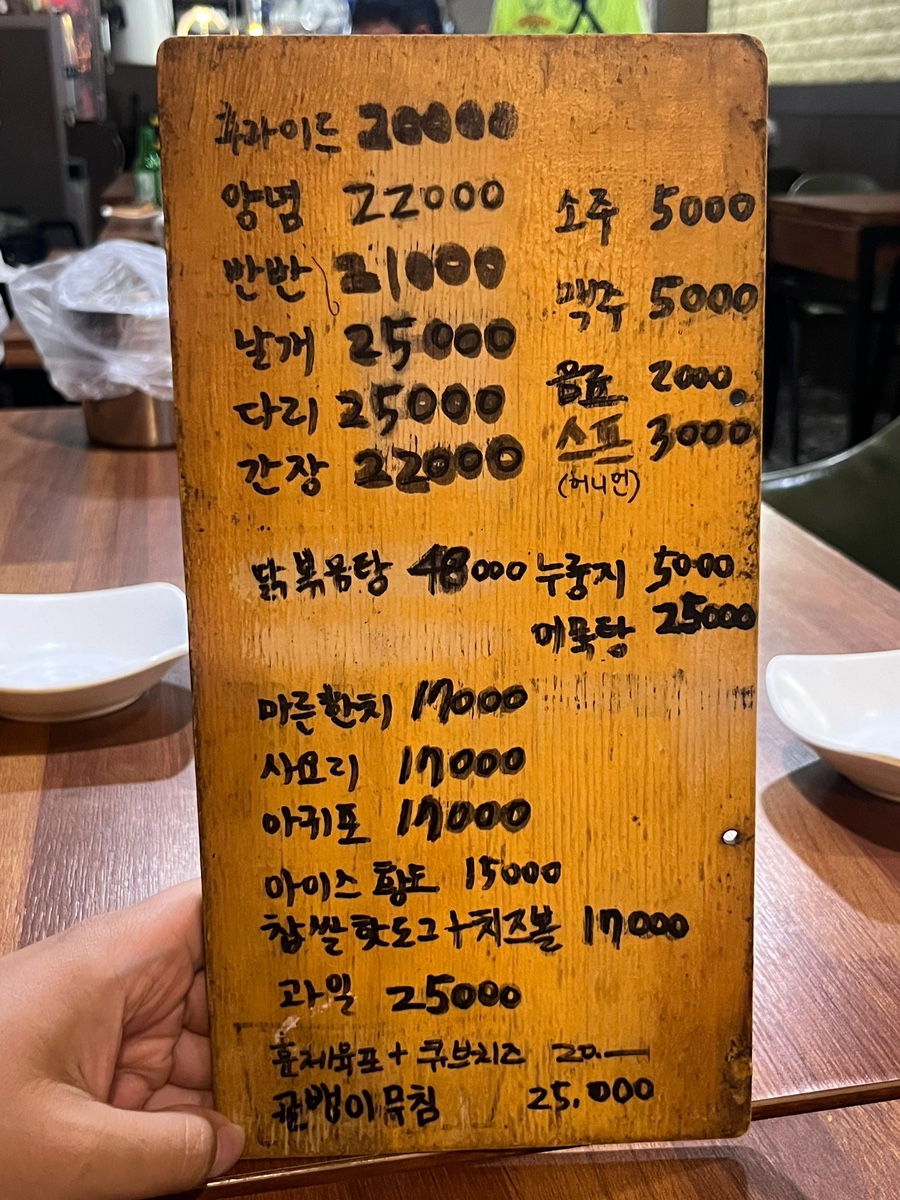 후라이드 20000
양념 22000
반반 21000
날개 25000
다리 25000
간장 22000
소주 5000
맥주 5000
음료 2000
스프 3000
(허니언)
닭볶음탕 48000
누룽지 5000
어묵탕 25000
마른한치 17000
사요리 17000
아귀포 17000
아이스황도 15000
찹쌀핫도그+치즈볼 17000
과일 25000
훈제육포+큐브치즈 20.—
골뱅이무침 25.000